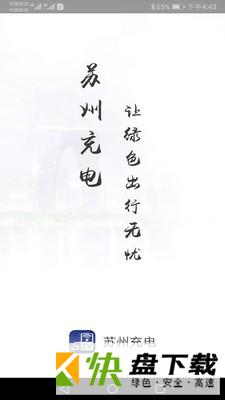 65% 下午4:43
苏州充电
让绿色出行无忧
苏州充电
快盘下载
绿色·安全·高速